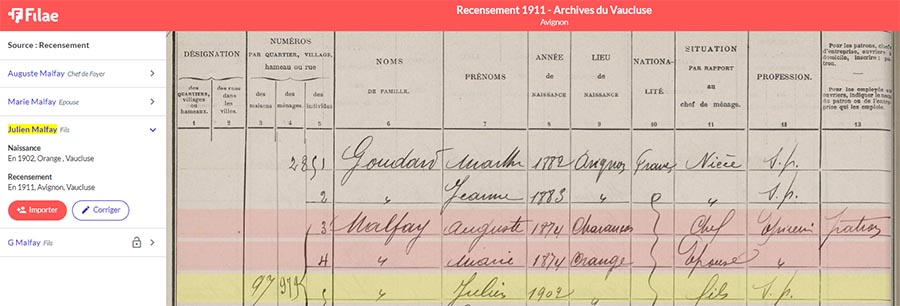 Filae
Recensement 1911 - Archives du Vaucluse
Avignon
Source : Recensement
Auguste Malfay Chef de Foyer
Marie Malfay Epouse
Julien Malfay Fils
Naissance
En 1902, Orange , Vaucluse
Recensement
En 1911, Avignon, Vaucluse
Importer
Corriger
G Malfay Fils
DÉSIGNATION
des QUARTIERS, villages ou hameaux.
des rues dans les villes.
NUMÉROS
PAR QUARTIER, VILLAGE, hameau ou rue
des maisons
des ménages.
des individus
NOMS
DE FAMILLE.
PRÉNOMS
ANNÉE
de
NAISSANCE
LIEU
de
NAISSANCE
NATIONA-
LITÉ.
SITUATION
PAR RAPPORT
au
chef de ménage.
PROFESSION.
Pour les patrons, chefs
d'entreprise, ouvriers à
domicile, inscrire : pa-
tron.
Pour les employés
ou ouvriers, indiquer le nom
du patron ou de l'entre-
prise qui les emploie.
1 2 3 4 5 6 7 8 9 10 11 12 13
1 Goudard 1882 Avignon Nièce s.p.
2 " Jeanne 1883 " " s.p.
3 Malfay Auguste 1874 Chef patron
4 " Marie 1874 Orange Epouse "
97 " Julien 1902 " fils s.p.